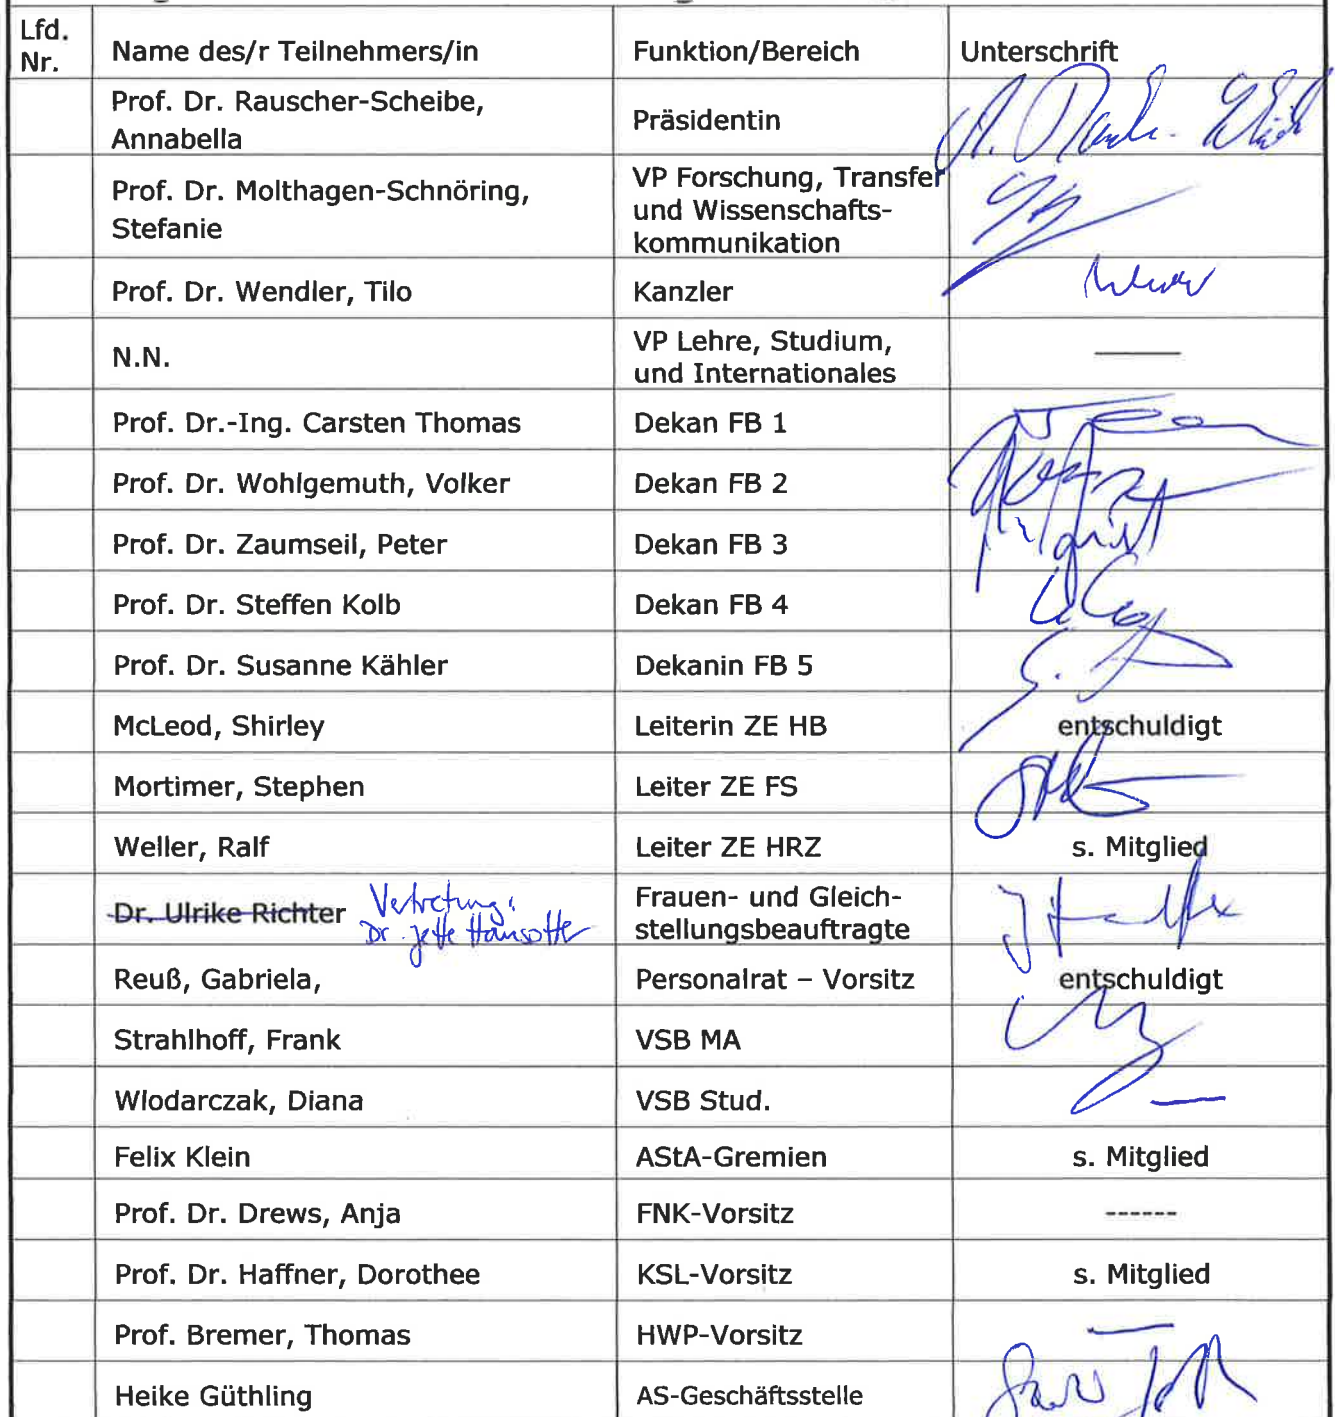 Lfd.
Nr.
Name des/r Teilnehmers/in
Funktion/Bereich
Unterschrift
Prof. Dr. Rauscher-Scheibe,
Annabella
Präsidentin
Prof. Dr. Molthagen-Schnöring,
Stefanie
VP Forschung, Transfer
und Wissenschafts-
kommunikation
Prof. Dr. Wendler, Tilo
Kanzler
N.N.
VP Lehre, Studium,
und Internationales
Prof. Dr.-Ing. Carsten Thomas
Dekan FB 1
Prof. Dr. Wohlgemuth, Volker
Dekan FB 2
Prof. Dr. Zaumseil, Peter
Dekan FB 3
Prof. Dr. Steffen Kolb
Dekan FB 4
Prof. Dr. Susanne Kähler
Dekanin FB 5
McLeod, Shirley
Leiterin ZE HB
entschuldigt
Mortimer, Stephen
Leiter ZE FS
Weller, Ralf
Leiter ZE HRZ
s. Mitglied
Dr. Ulrike Richter
Vertretung:
Dr. Jette Hausotter
Frauen- und Gleich-
stellungsbeauftragte
Reuß, Gabriela,
Personalrat – Vorsitz
entschuldigt
Strahlhoff, Frank
VSB MA
Wlodarczak, Diana
VSB Stud.
Felix Klein
AStA-Gremien
s. Mitglied
Prof. Dr. Drews, Anja
FNK-Vorsitz
------
Prof. Dr. Haffner, Dorothee
KSL-Vorsitz
s. Mitglied
Prof. Bremer, Thomas
HWP-Vorsitz
Heike Güthling
AS-Geschäftsstelle